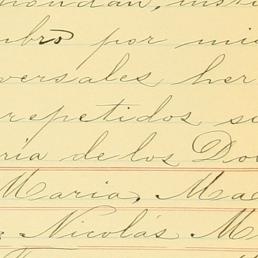 mbro por mis
versales her
repetidos su
ria de los Do
Maria, Ma
Nicolás M